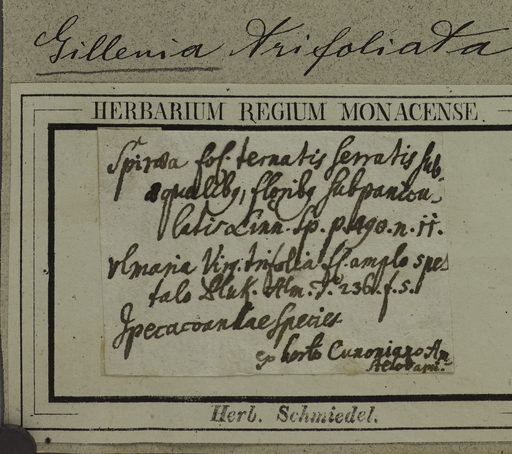 Gillenia trifoliata
HERBARIUM REGIUM MONACENSE.
Spiræa fol. ternatis serratis sub
æqualibq, floribq subpanicu-
latis Linn. Sp. p. 490. n. 11.
Ulmaria Virg. trifolia fl. amplo
talo Pluk. Alm. T. 236. f. 5.
Ipecacoanhae species
ex horto Cunoniano Am
Herb. Schmiedel.